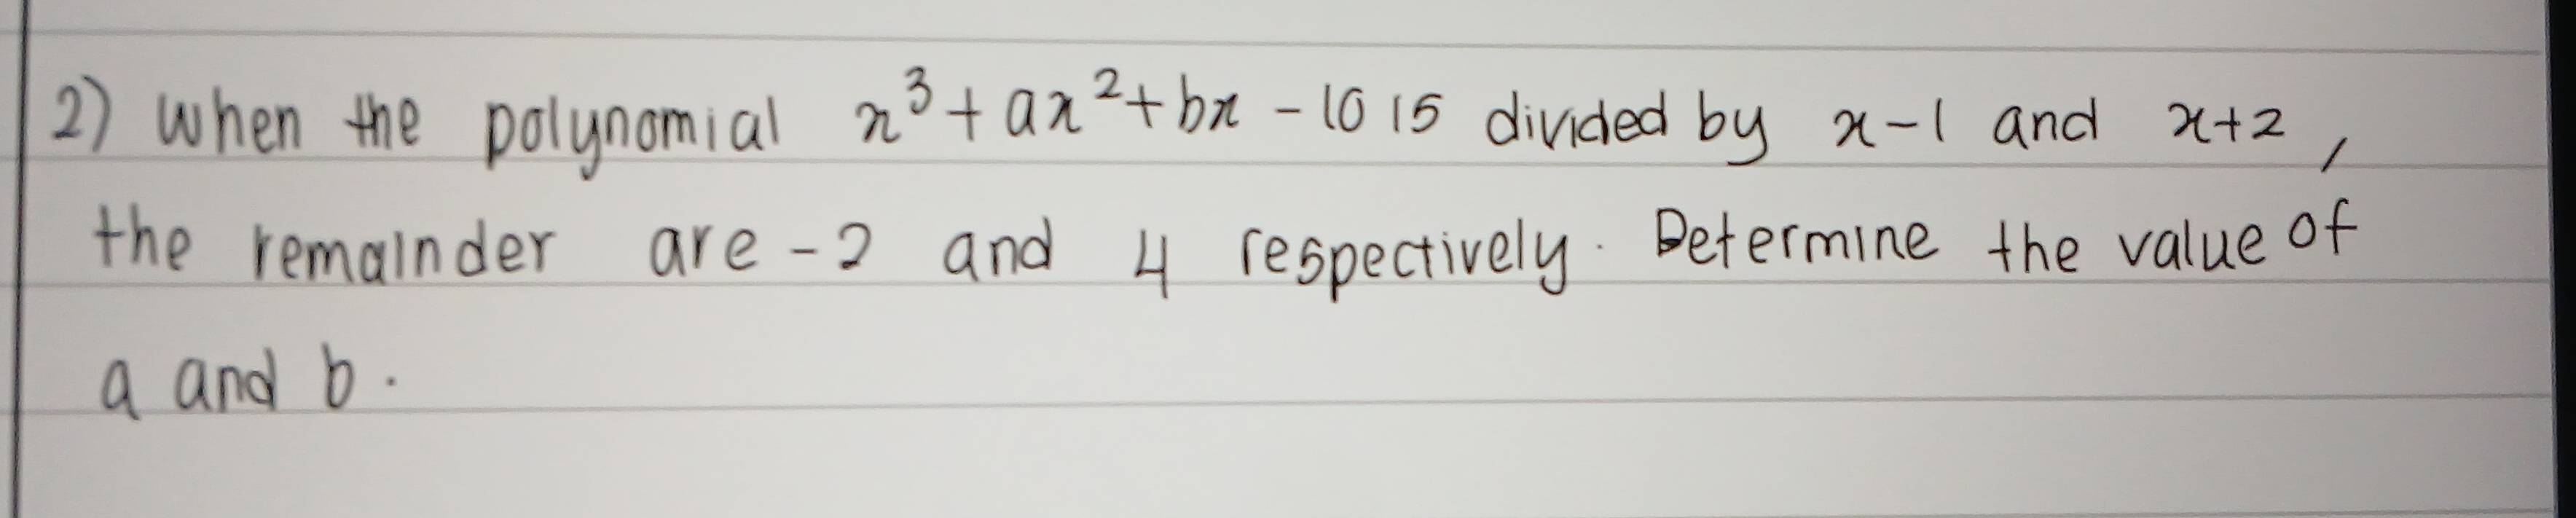 2) When the polynomial x³ + ax² + bx - 10 15 divided by x-1 and x+2,
the remainder are -2 and 4 respectively. Determine the value of
a and b.